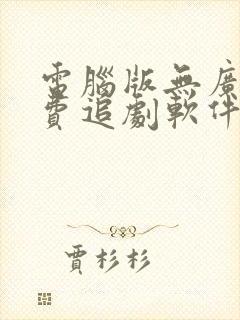 電腦版無廣
費追劇軟件
賈杉杉